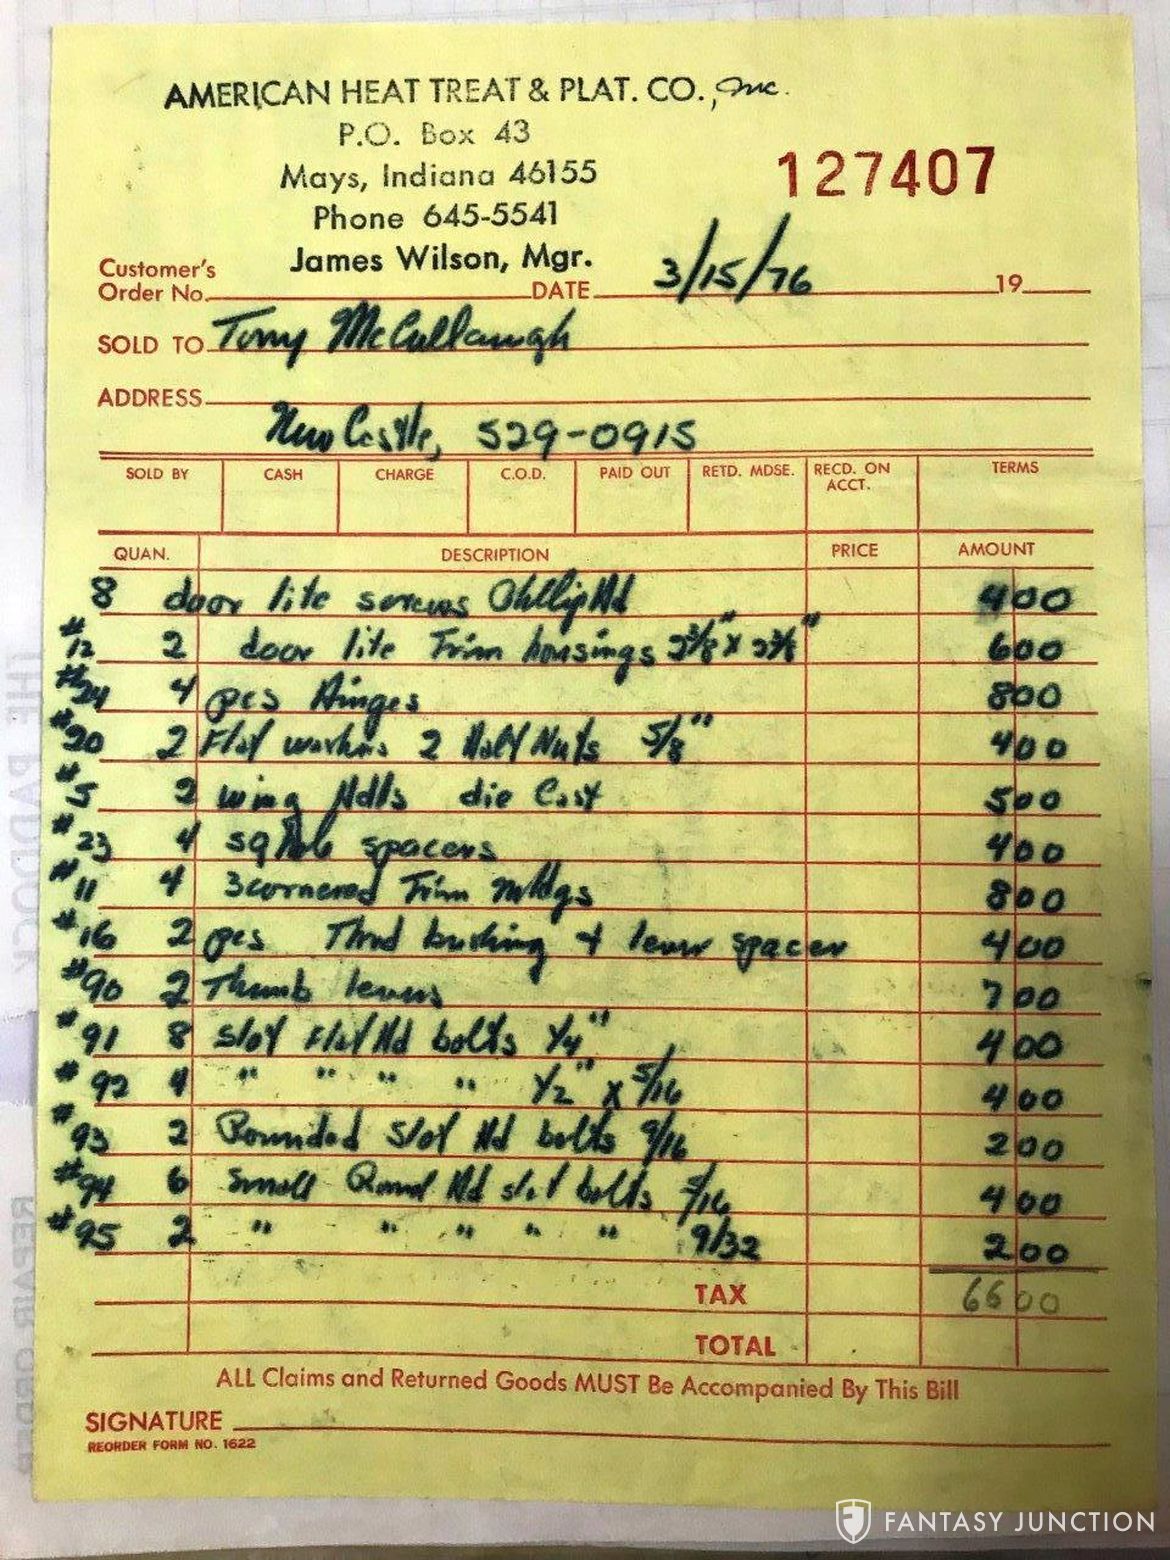 AMERICAN HEAT TREAT & PLAT. CO., Inc.
P.O. Box 43
Mays, Indiana 46155
127407
Phone 645-5541
James Wilson, Mgr.
Customer's
Order No. DATE 3/15/76 19
SOLD TO Tony McCullaugh
ADDRESS
New Castle, 529-0915
SOLD BY CASH CHARGE C.O.D. PAID OUT RETD. MDSE. RECD. ON ACCT. TERMS
QUAN. DESCRIPTION PRICE AMOUNT
8 door lite screws Phillip Hd 4 00
#12 2 door lite Trim housings 2 3/8" x 2 3/8" 6 00
#24 4 pcs Hinges 8 00
#20 2 Flat washers 2 Half Nuts 5/8" 4 00
#5 2 wing Hdls die Cast 5 00
#23 4 sq Hole spacers 4 00
#11 4 3 cornered Trim Mldgs 8 00
#16 2 pcs Thrd bushing + lever spacer 4 00
#90 2 Thumb levers 7 00
#91 8 slot Flat Hd bolts 1/4" 4 00
#92 4 " " " " 1/2" x 5/16 4 00
#93 2 Rounded Slot Hd bolts 9/16 2 00
#94 6 Small Round Hd slot bolts 5/16 4 00
#95 2 " " " " " 9/32 2 00
TAX 66 00
TOTAL
ALL Claims and Returned Goods MUST Be Accompanied By This Bill
SIGNATURE
REORDER FORM NO. 1622
THE PADDOCK
REPAIR ORDER
FANTASY JUNCTION